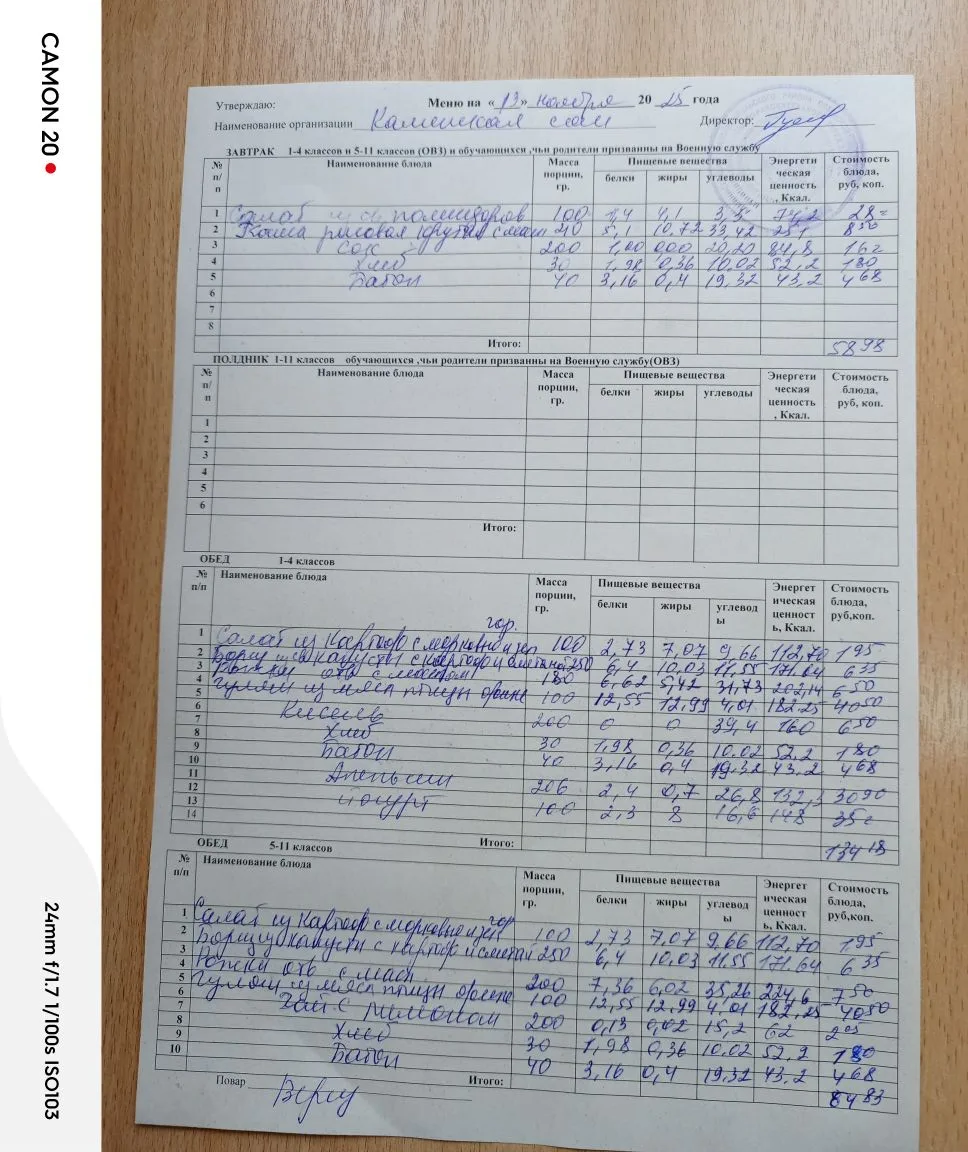 CAMON 20
24mm f/1.7 1/100s ISO103
Утверждаю: Меню на « 13 » ноября 20 25 года
Наименование организации Каменская сош Директор:
ЗАВТРАК 1-4 классов и 5-11 классов (ОВЗ) и обучающихся ,чьи родители призванны на Военную службу
№ п/п Наименование блюда Масса порции, гр. Пищевые вещества белки жиры углеводы Энергетическая ценность, Ккал. Стоимость блюда, руб, коп.
1 Салат из св помидоров 100 1,4 4,1 3,5 74,2 28=
2 Каша рисовая крутая с масл 5,1 10,72 33,42 251 8 50
3 Сок 200 1,00 0,00 20,20 84,8 16=
4 Хлеб 30 1,98 0,36 10.02 52,2 1 80
5 Батон 40 3,16 0,4 19,32 43,2 4 68
6
7
8
Итого: 58 98
ПОЛДНИК 1-11 классов обучающихся ,чьи родители призванны на Военную службу(ОВЗ)
№ п/п Наименование блюда Масса порции, гр. Пищевые вещества белки жиры углеводы Энергетическая ценность, Ккал. Стоимость блюда, руб, коп.
1
2
3
4
5
6
Итого:
ОБЕД 1-4 классов
№ п/п Наименование блюда Масса порции, гр. Пищевые вещества белки жиры углеводы Энергетическая ценность, Ккал. Стоимость блюда, руб,коп.
1 Салат из картоф с морковью и зел гор. 100 2,73 7,07 9,66 112,70 19 5
2 Борщ из св капусты с картоф и сметаной 250 6,4 10,03 11,55 171.64 6 35
3 Рожки отв с маслом 180 6,62 5,42 31,73 202,14 6 50
4 Гуляш из мяса птицы 100 12,55 12,99 4,01 182,25 40 50
5
6 Кисель 200 0 0 39,4 160 6 50
7 Хлеб 30 1,98 0,36 10.02 52,2 1 80
8 Батон 40 3,16 0,4 19.32 43,2 4 68
9
10 Апельсин 206 2,4 0,7 26,8 132, 30 90
11 Йогурт 100 2,3 8 16,6 148 35=
12
13
14
Итого: 134 18
ОБЕД 5-11 классов
№ п/п Наименование блюда Масса порции, гр. Пищевые вещества белки жиры углеводы Энергетическая ценность, Ккал. Стоимость блюда, руб,коп.
1 Салат из картоф с морковью и зел гор 100 2,73 7,07 9,66 112,70 19 5
2 Борщ из капусты с картоф и сметан 250 6,4 10,03 11.55 171,64 6 35
3 Рожки отв с масл 200 7,36 6,02 35,26 224,6 7 50
4 Гуляш из мяса птицы 100 12,55 12,99 4.01 182,25 40 50
5
6 Чай с лимоном 200 0,13 0,02 15,2 62 2 05
7 Хлеб 30 1,98 0,36 10.02 52,2 1 80
8 Батон 40 3,16 0,4 19,32 43,2 4 68
9
10
Итого: 84 83
Повар